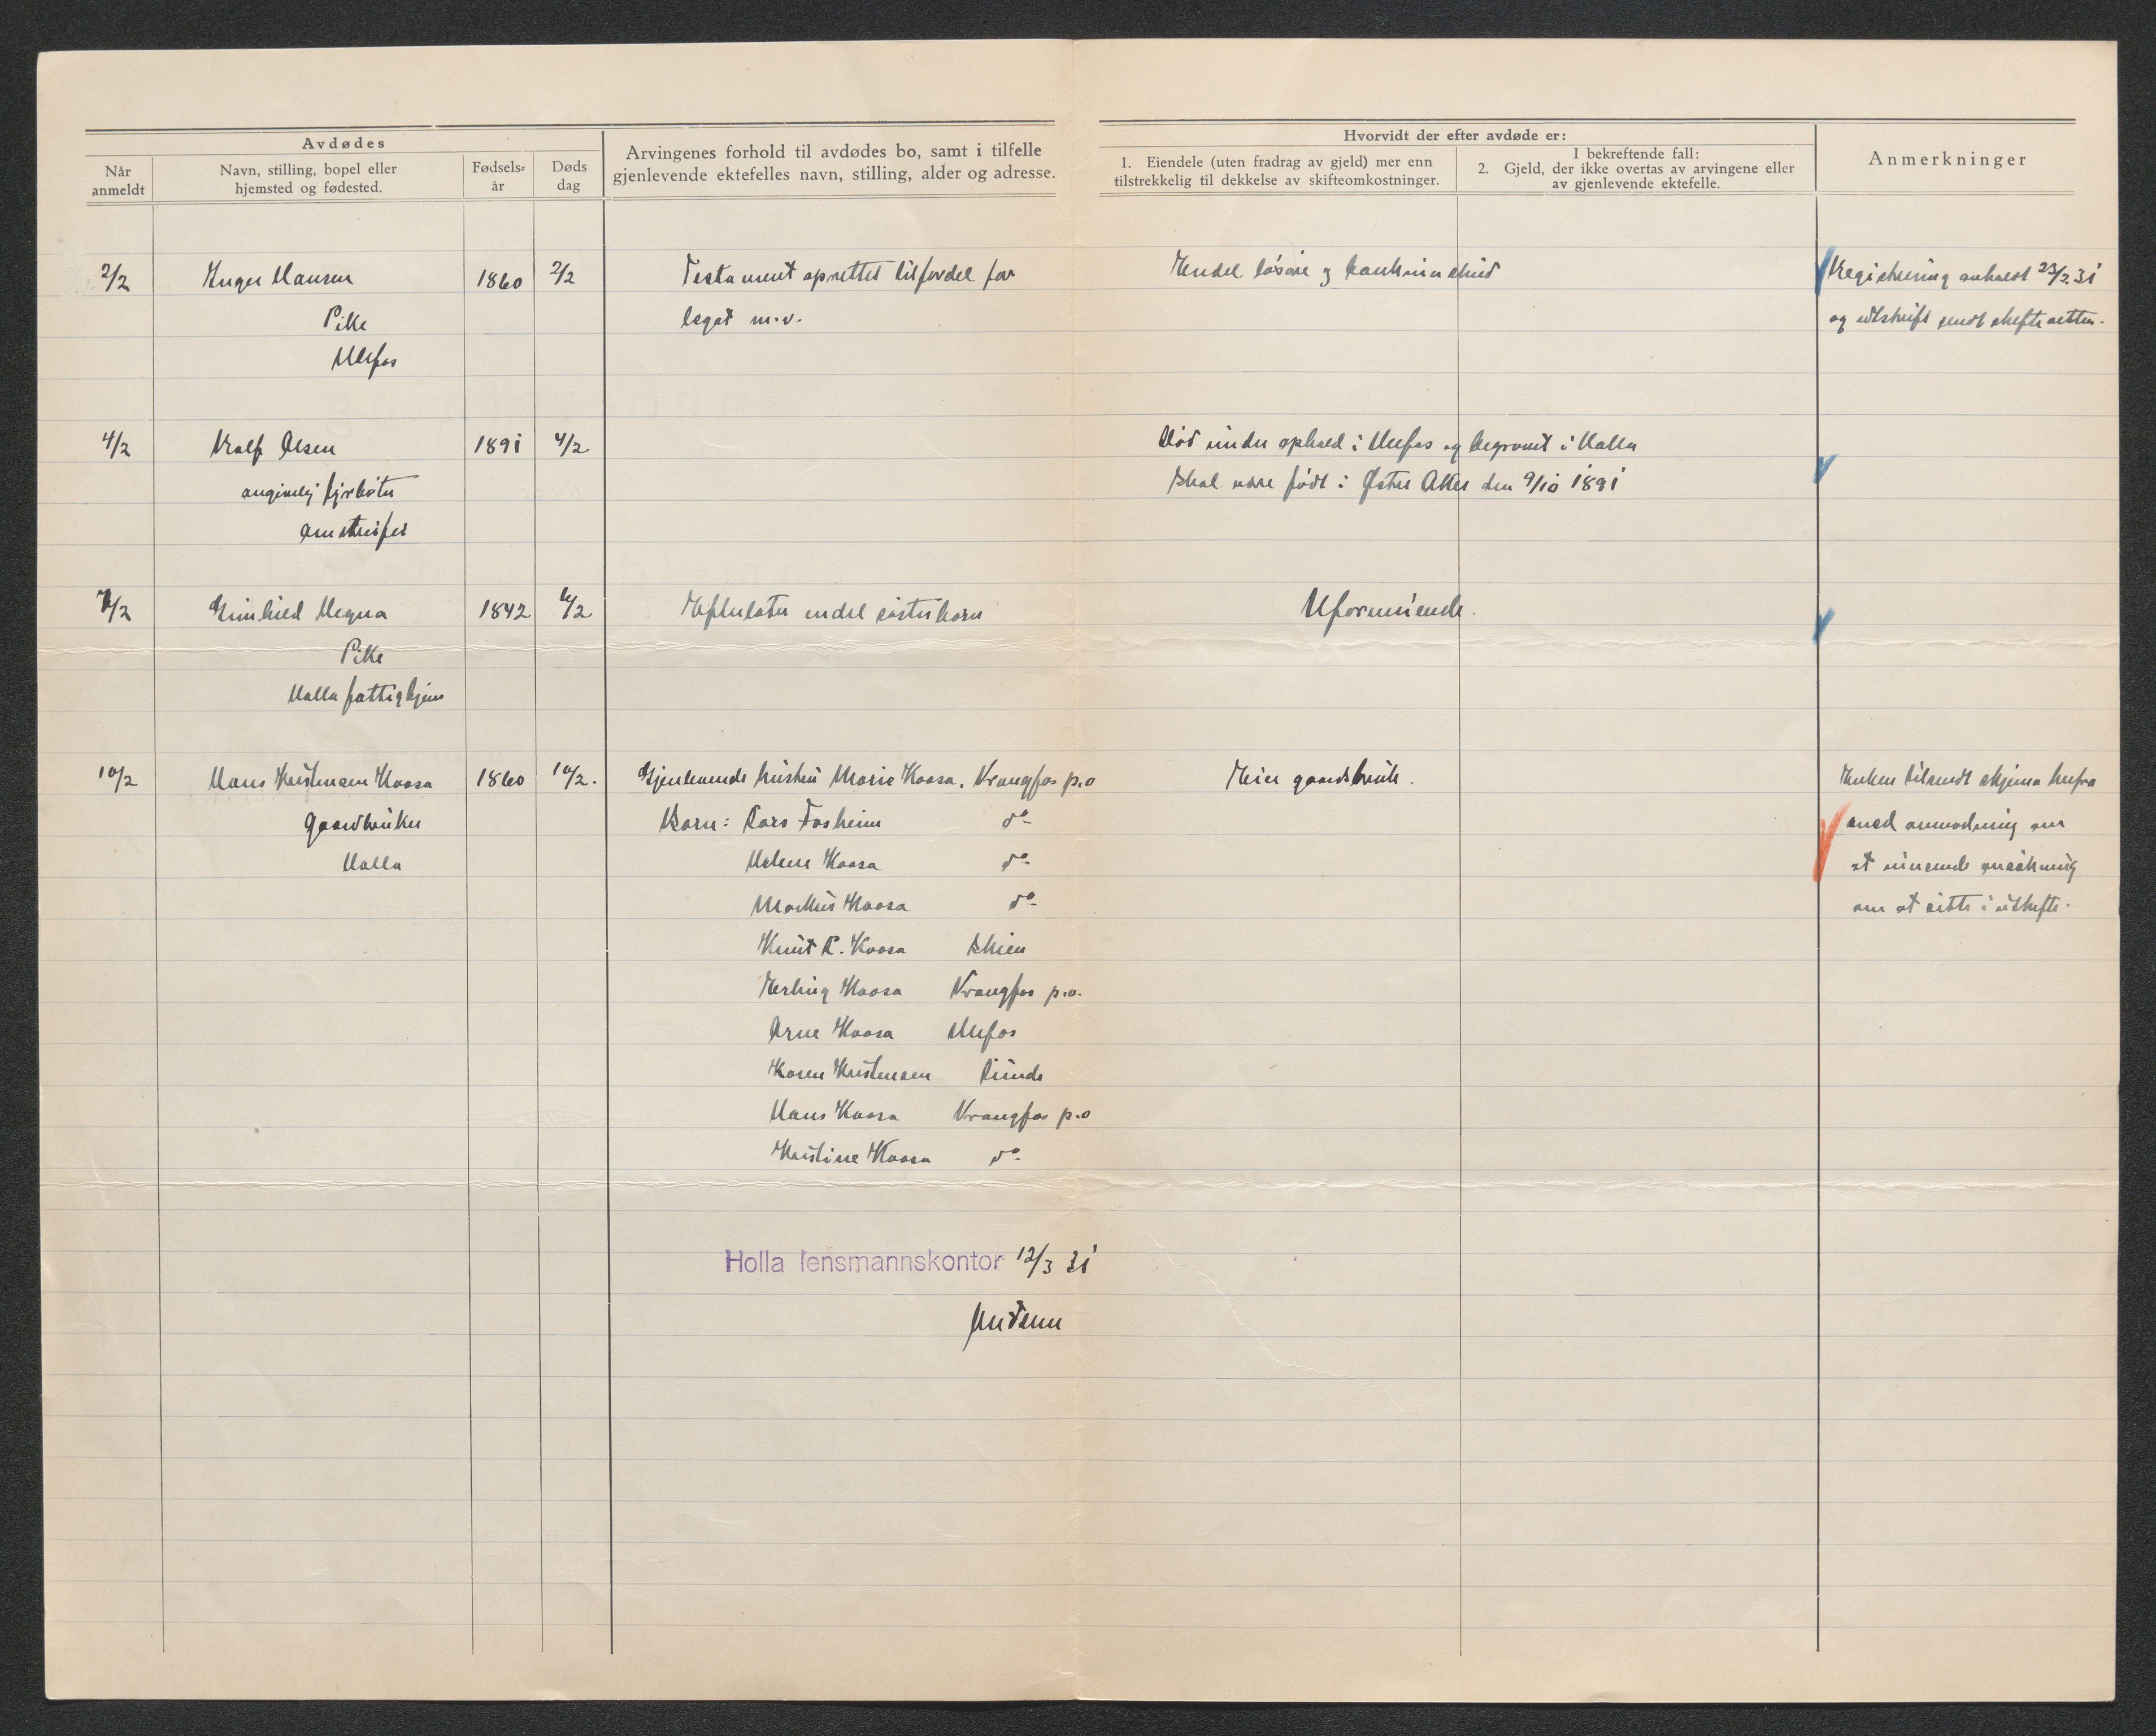 Avdødes
Når anmeldt
Navn, stilling, bopel eller hjemsted og fødested.
Fødsels- år
Døds dag
Arvingenes forhold til avdødes bo, samt i tilfelle gjenlevende ektefelles navn, stilling, alder og adresse.
Hvorvidt der efter avdøde er:
1. Eiendele (uten fradrag av gjeld) mer enn tilstrekkelig til dekkelse av skifteomkostninger.
I bekreftende fall:
2. Gjeld, der ikke overtas av arvingene eller av gjenlevende ektefelle.
Anmerkninger
2/2 Inger Hansen 1860 2/2 Testament oprettet til fordel for Endel løsøre og bankinnskud Registrering avholdt 23/2.31
Pike legat m.v. og utskrift sendt skifteretten.
Ulefos
4/2 Rolf Olsen 1891 4/2 Død under ophold i Ulefos og begravet i Holla
angivelig fyrbøter Skal være født i Østre Aker den 9/10 1891
7/2 Gunhild Hegna 1842 6/2 Efterlater endel søsterbarn Uformuende.
Pike
Holla fattighjem
10/2 Hans Kristensen Kaasa 1860 10/2. Gjenlevende hustru Marie Kaasa, Vrangfos p.o Eier gaardsbruk. Enken tilsendt skjema herfra
gaardbruker Barn: Lars Fosheim do med anmodning om
Holla Helene Kaasa do at innsende ansøkning
Markus Kaasa do om at sitte i uskifte.
Knut L. Kaasa Skien
Erling Kaasa Vrangfos p.o.
Arne Kaasa Ulefos
Karen Kristensen Lunde
Hans Kaasa Vrangfos p.o
Kristine Kaasa do
Holla lensmannskontor 12/3 31